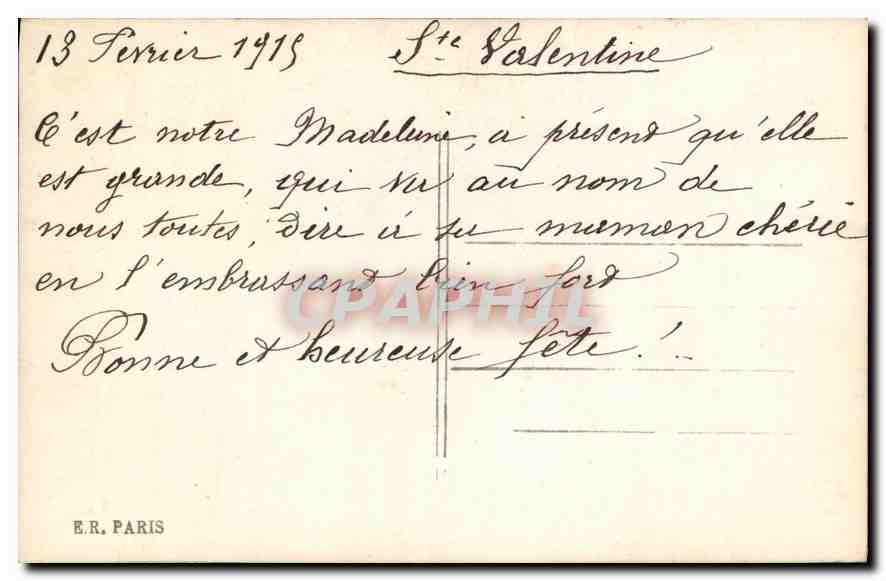 13 Fevrier 1915 Ste Valentine
C'est notre Madeleine, à présend qu'elle
est grande, qui va au nom de
nous toutes, dire à sa maman chérie
en l'embrassand bien ford
Bonne et heureuse fête !..
CPAPHIL
E.R. PARIS